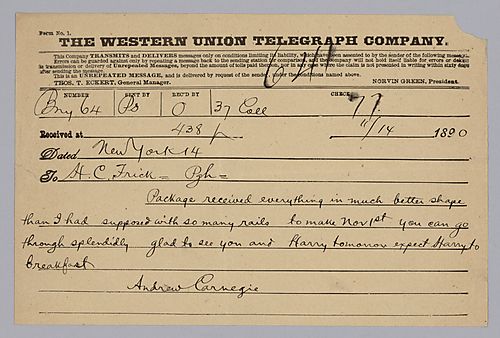 Form No. 1.
THE WESTERN UNION TELEGRAPH COMPANY.
This Company TRANSMITS and DELIVERS messages only on conditions limiting its liability, which have been assented to by the sender of the following message.
Errors can be guarded against only by repeating a message back to the sending station for comparison, and the company will not hold itself liable for errors or delays
in transmission or delivery of Unrepeated Messages, beyond the amount of tolls paid thereon, nor in any case where the claim is not presented in writing within sixty days
after sending the message.
This is an UNREPEATED MESSAGE, and is delivered by request of the sender, under the conditions named above.
THOS. T. ECKERT, General Manager. NORVIN GREEN, President.
NUMBER SENT BY REC'D BY CHECK
Bny 64 O 37 Coll 77
Received at 438 p 11/14 1890
Dated New York 14
To H. C. Frick = Pgh =
Package received everything in much better shape
than I had supposed with so many rails to make Nov 1st you can go
through splendidly glad to see you and Harry tomorrow expect Harry to
breakfast
Andrew Carnegie